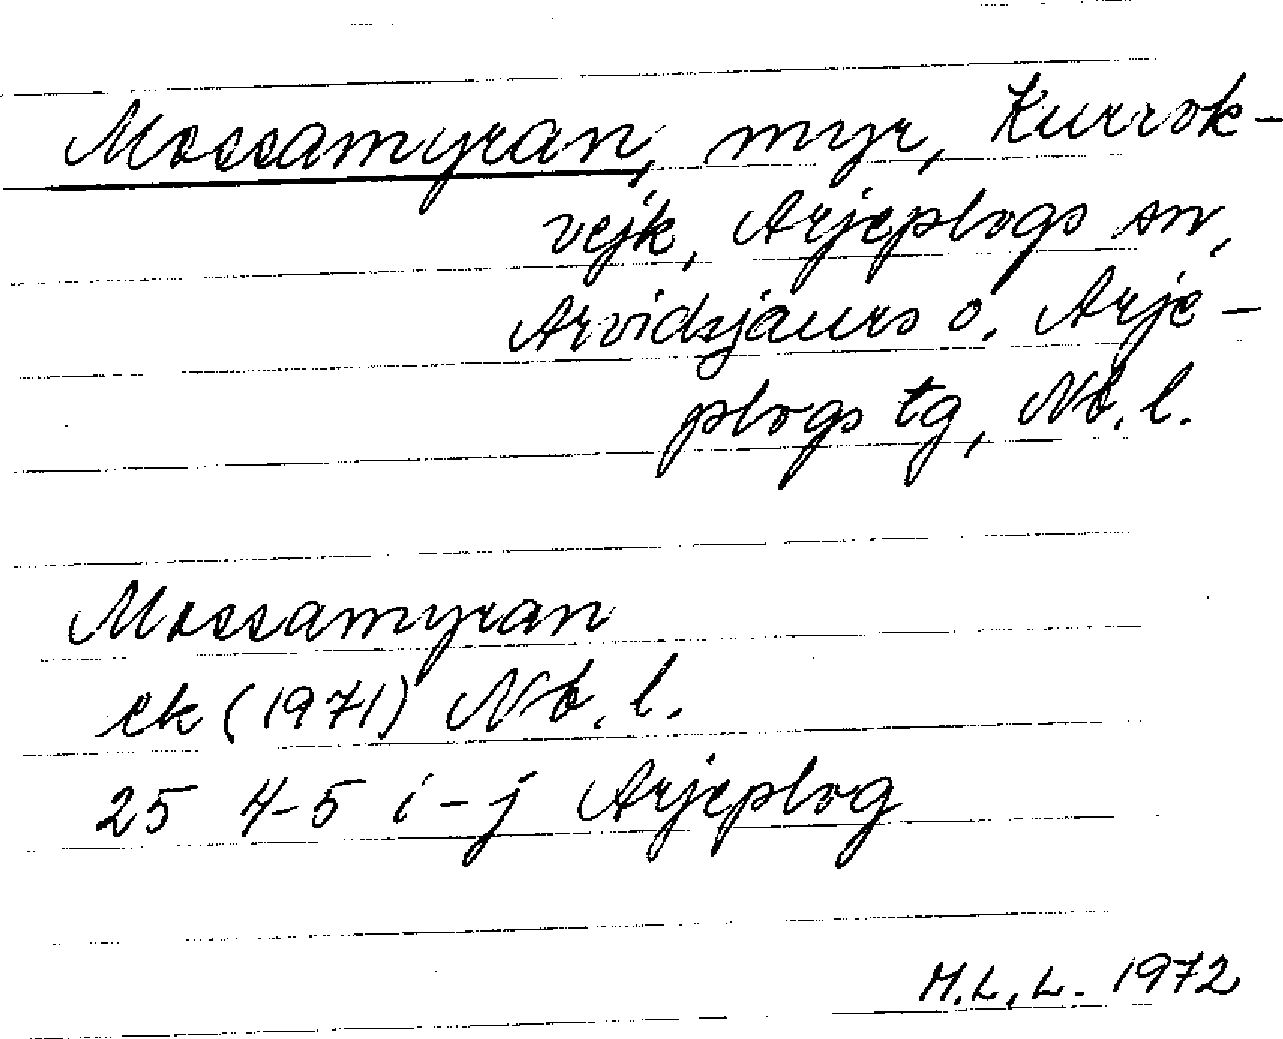 Mossamyran, myr, Kurrok-
vejk, Arjeplogs sn,
Arvidsjaurs o. Arje-
plogs tg, Nb. l.
Mossamyran
ek (1971) Nb. l.
25 4-5 i-j Arjeplog
M.L.L. 1972